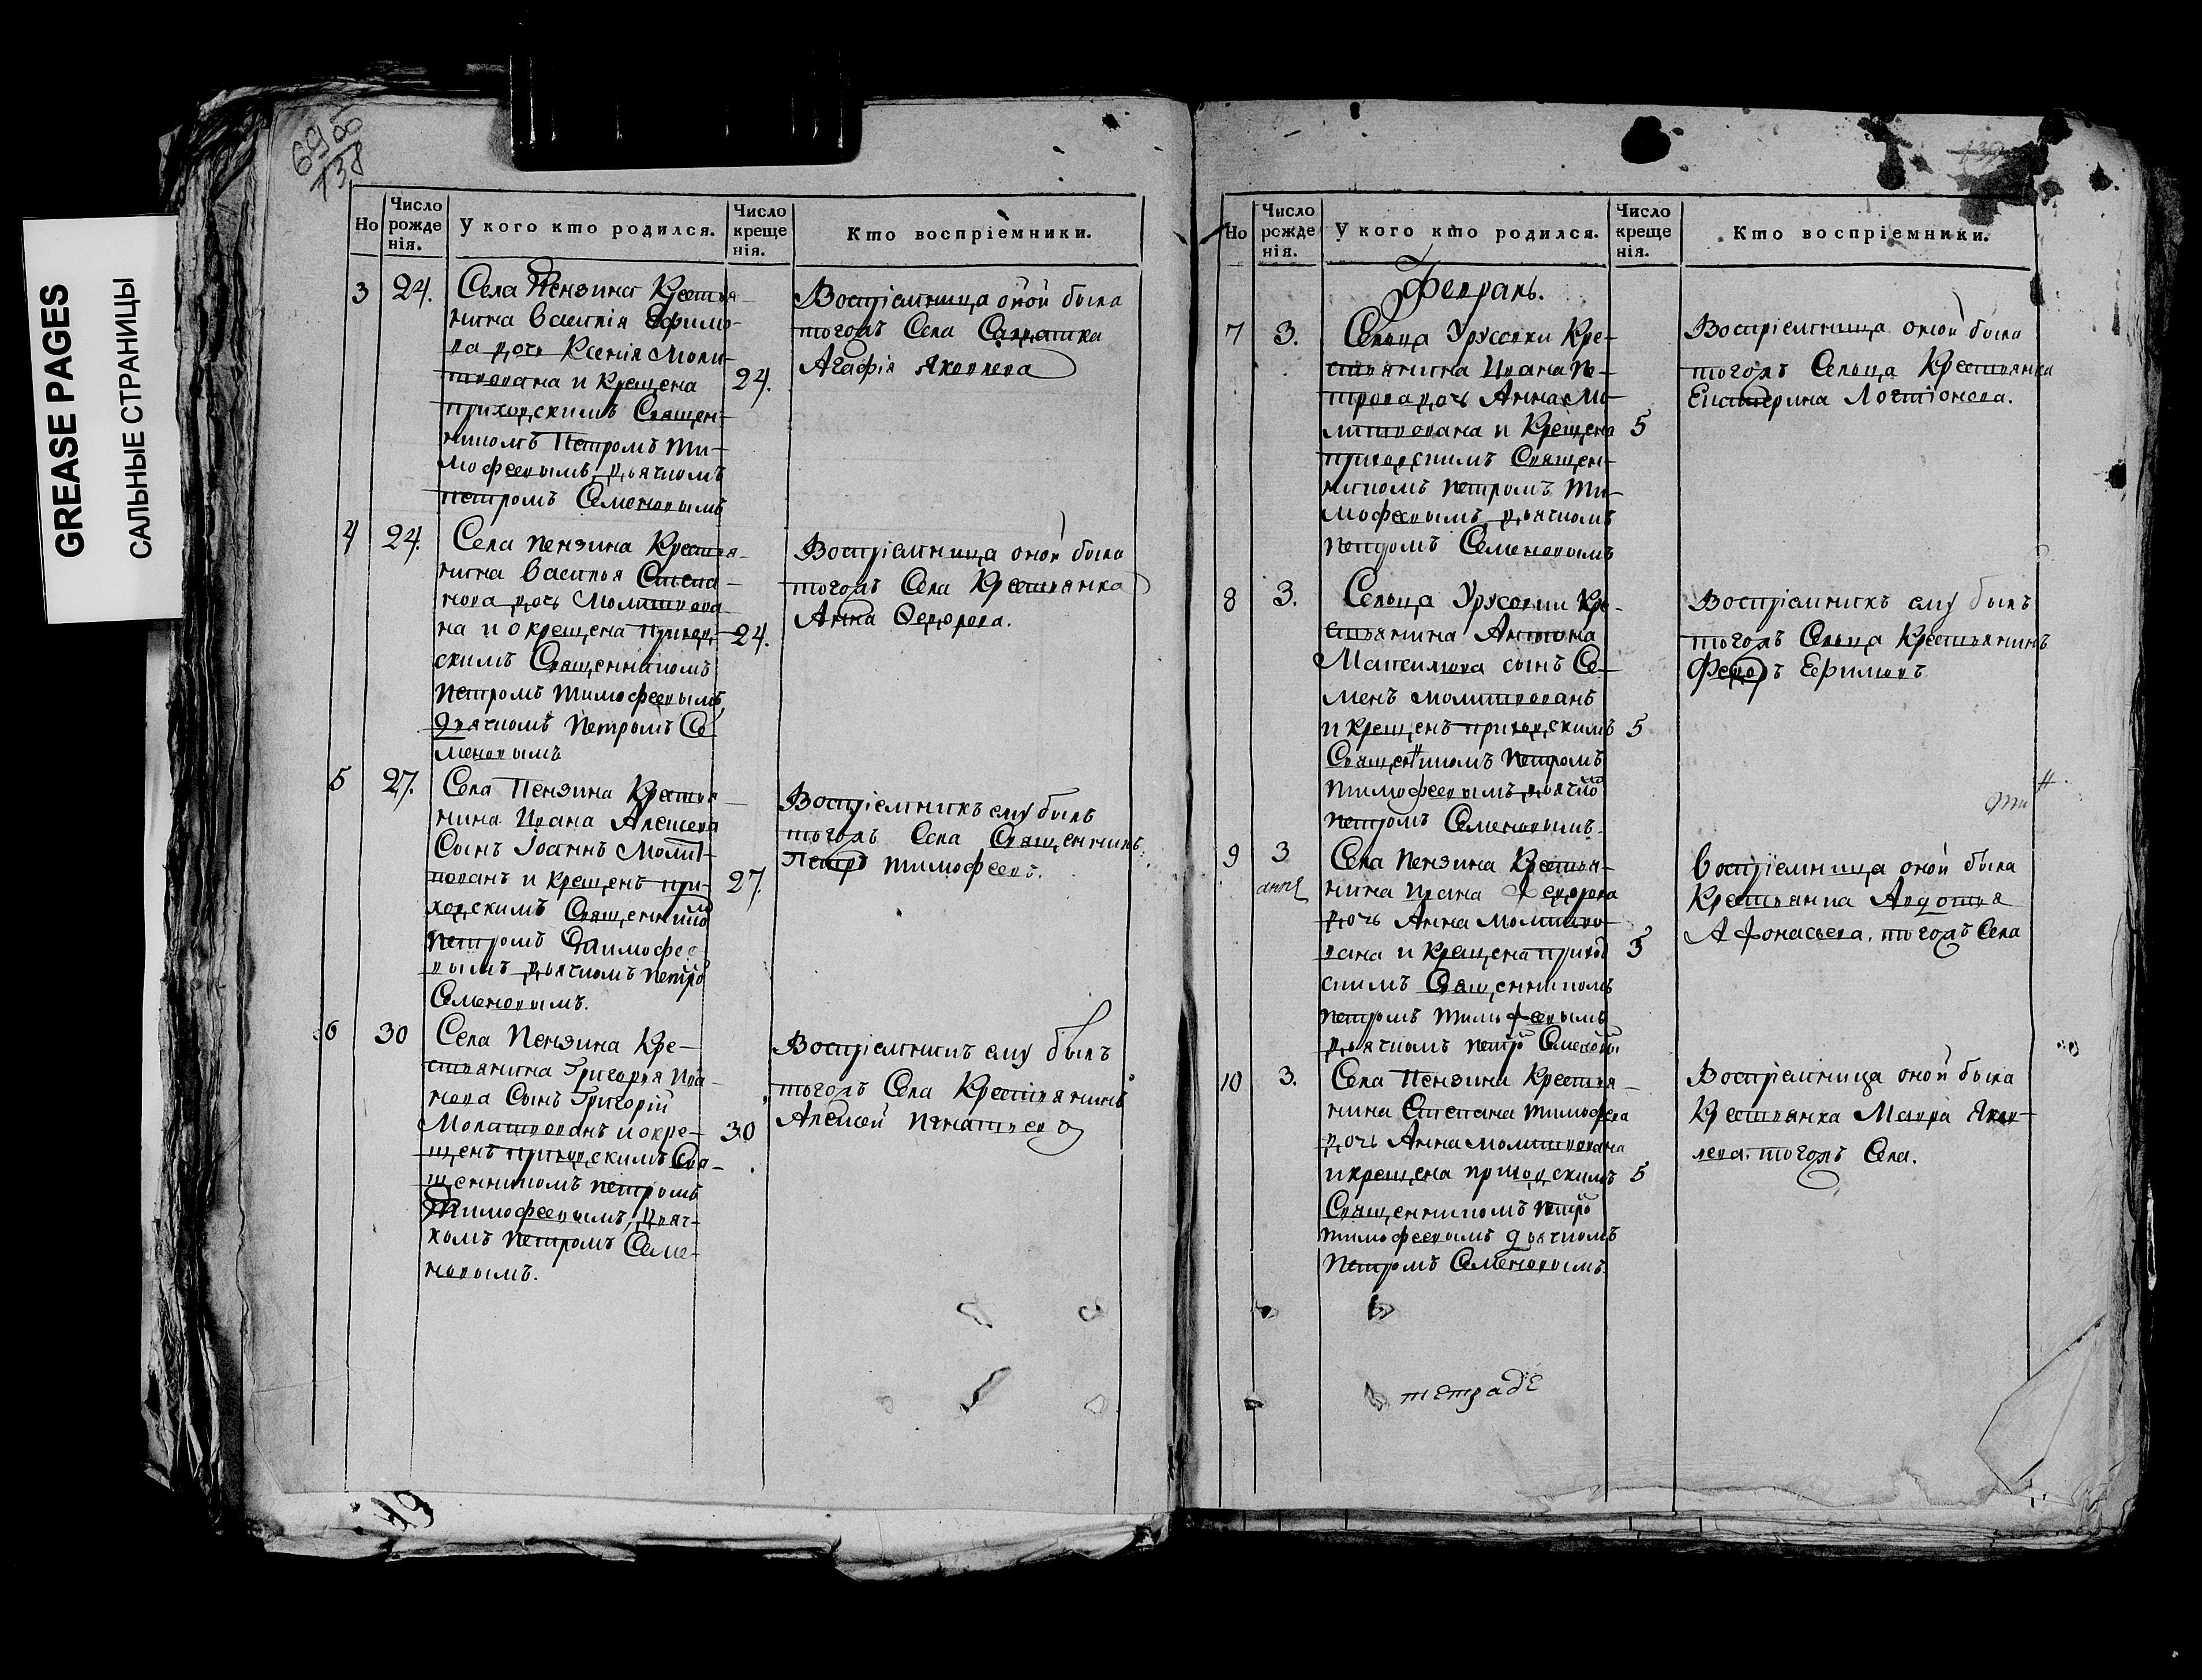 GREASE PAGES
САЛЬНЫЕ СТРАНИЦЫ
138
Но
Число рожденія.
У кого кто родился.
Число крещенія.
Кто воспріемники.
3 24. Села Пензина Крестья-
нина Василія Ефимо-
ва дочь Ксенія Моли-
твована и Крещена 24.
приходскимъ Священ-
никомъ Петромъ Ти-
мофеевымъ, дьячкомъ
Петромъ Семеновымъ
Воспріемница оной была
тогожъ Села
Агафія Яковлева
4 24. Села Пензина Крестья-
нина Василья Степа-
нова дочь Молитвова-
на и окрещена приход- 24.
скимъ Священникомъ
Петромъ Тимофеевымъ,
дьячкомъ Петромъ Се-
меновымъ
Воспріемница оной была
тогожъ Села Крестьянка
Анна Ѳедорова.
5 27. Села Пензина Крестья-
нина Ивана Алексеева
Сынъ Іоаннъ Моли-
твованъ и Крещенъ при- 27.
ходскимъ Священнико
Петромъ Тимофее-
вымъ дьячкомъ Петро
Семеновымъ.
Воспріемникъ ему былъ
тогожъ Села Священникъ
Петръ Тимофеевъ.
6 30 Села Пензина Кре-
стьянина Григорья Ива-
нова Сынъ Григорій
Молитвованъ и окре- 30
щенъ приходскимъ Свя-
щенникомъ Петромъ
Тимофеевымъ, дьяч-
комъ Петромъ Семе-
новымъ.
Воспріемникъ ему былъ
тогожъ Села Крестьянинъ
Алексей Игнатьевъ
Но
Число рожденія.
У кого кто родился.
Число крещенія.
Кто воспріемники.
Февраль.
7 3. Сельца Урусовки Кре-
стьянина Ивана Пе-
трова дочь Анна Мо-
литвована и Крещена 5
приходскимъ Священ-
никомъ Петромъ Ти-
мофеевымъ, дьячкомъ
Петромъ Семеновымъ
Воспріемница оной была
тогожъ Сельца Крестьянка
Екатерина Логтіонова.
8 3. Сельца Урусовки Кре-
стьянина Антона
Максимова сынъ Се-
менъ молитвованъ
и Крещенъ приходскимъ 5
Священникомъ Петромъ
Тимофеевымъ дьячко
Петромъ Семеновымъ.
Воспріемникъ ему былъ
тогожъ Сельца Крестьянинъ
Федоръ Ефимовъ
9 3 Села Пензина Крестья-
нина Ивана Федорова
дочь Анна Молитво-
вана и Крещена приход 5
скимъ Священникомъ
Петромъ Тимофеевымъ
дьячкомъ Петро Семеновы
Воспріемница оной была
Крестьянка Авдотья
Афонасьева. тогожъ Села
10 3. Села Пензина Крестья-
нина Степана Тимофеева
дочь Анна молитвована
и крещена приходскимъ 5
Священникомъ Петро
Тимофеевымъ дьячкомъ
Петромъ Семеновымъ.
Воспріемница оной была
Крестьянка Мавра Яков-
лева. тогожъ Села.
тетрадѣ